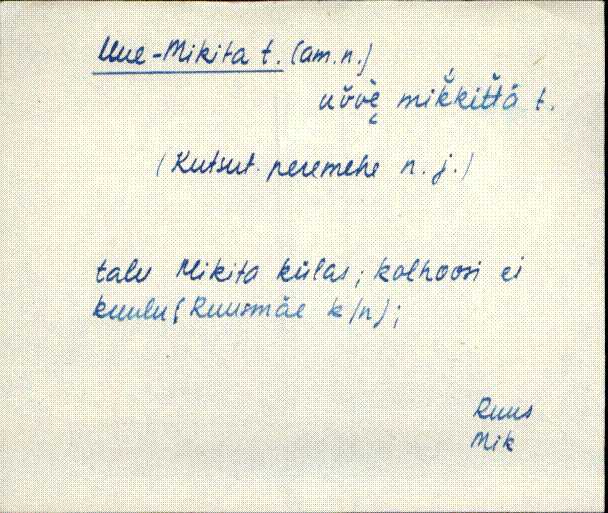 Uue-Mikita t. (am.n.)
ǔvǔẹ mik̆kit̆tä t.
(Kutsut. peremehe n. j.)
talu Mikita külas; kolhoosi ei
kuulu (Ruusmäe k/n);
Ruus
Mik